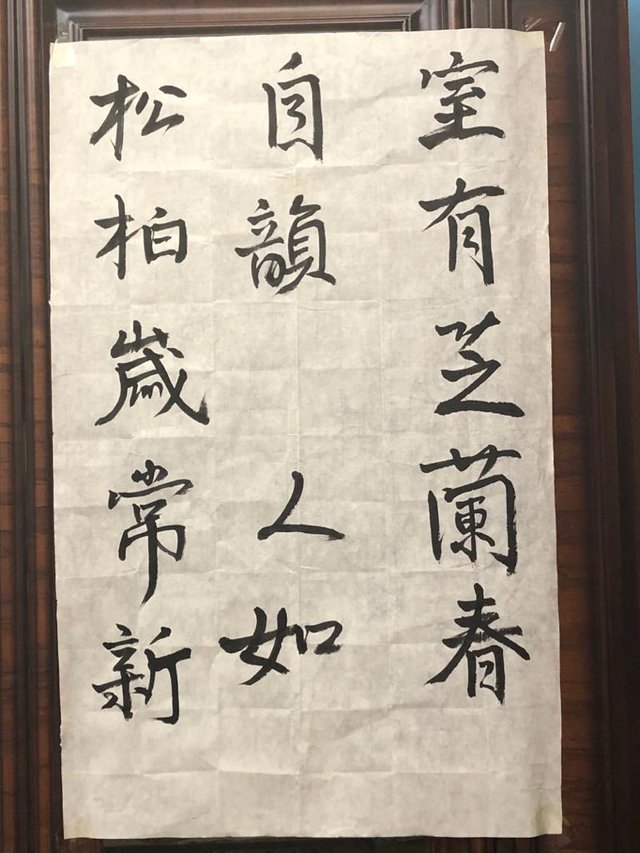 室有芝蘭春
自韻 人如
松柏歲常新